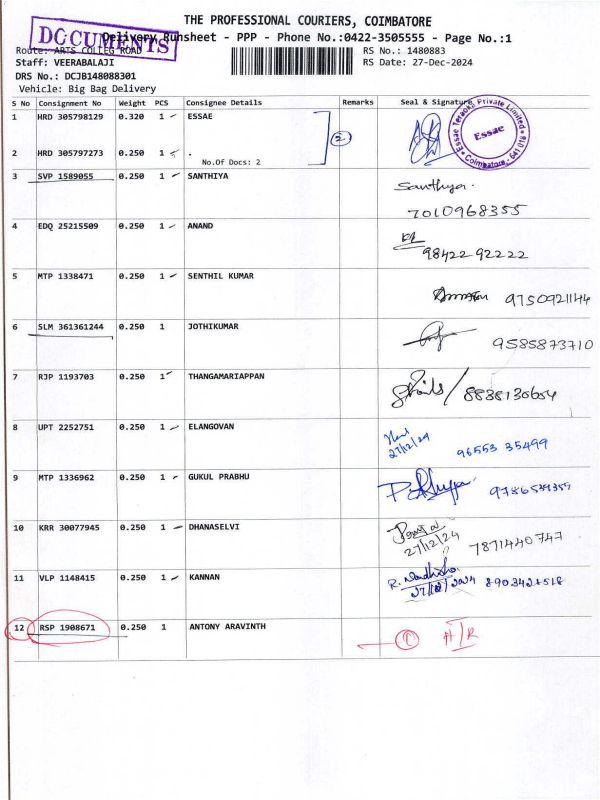 THE PROFESSIONAL COURIERS, COIMBATORE
DOCUMENTS
Delivery Runsheet - PPP - Phone No.:0422-3505555 - Page No.:1
Route: ARTS COLLEG ROAD
RS No.: 1480883
Staff: VEERABALAJI
RS Date: 27-Dec-2024
DRS No.: DCJB148088301
Vehicle: Big Bag Delivery
S No Consignment No Weight PCS Consignee Details Remarks Seal & Signature
1 HRD 305798129 0.320 1 ESSAE
2
Essae Teraoka Private Limited
Essae
Coimbatore - 641 018
2 HRD 305797273 0.250 1 .
No.Of Docs: 2
3 SVP 1589055 0.250 1 SANTHIYA Santhiya
7010968355
4 EDQ 25215509 0.250 1 ANAND
98422 92222
5 MTP 1338471 0.250 1 SENTHIL KUMAR 9750921144
6 SLM 361361244 0.250 1 JOTHIKUMAR 9585873710
7 RJP 1193703 0.250 1 THANGAMARIAPPAN / 8838130654
8 UPT 2252751 0.250 1 ELANGOVAN
27/12/24 96553 35499
9 MTP 1336962 0.250 1 GUKUL PRABHU 9786539355
10 KRR 30077945 0.250 1 DHANASELVI
27/12/24 7871440747
11 VLP 1148415 0.250 1 KANNAN R.
27/12/2024 8903428518
12 RSP 1908671 0.250 1 ANTONY ARAVINTH